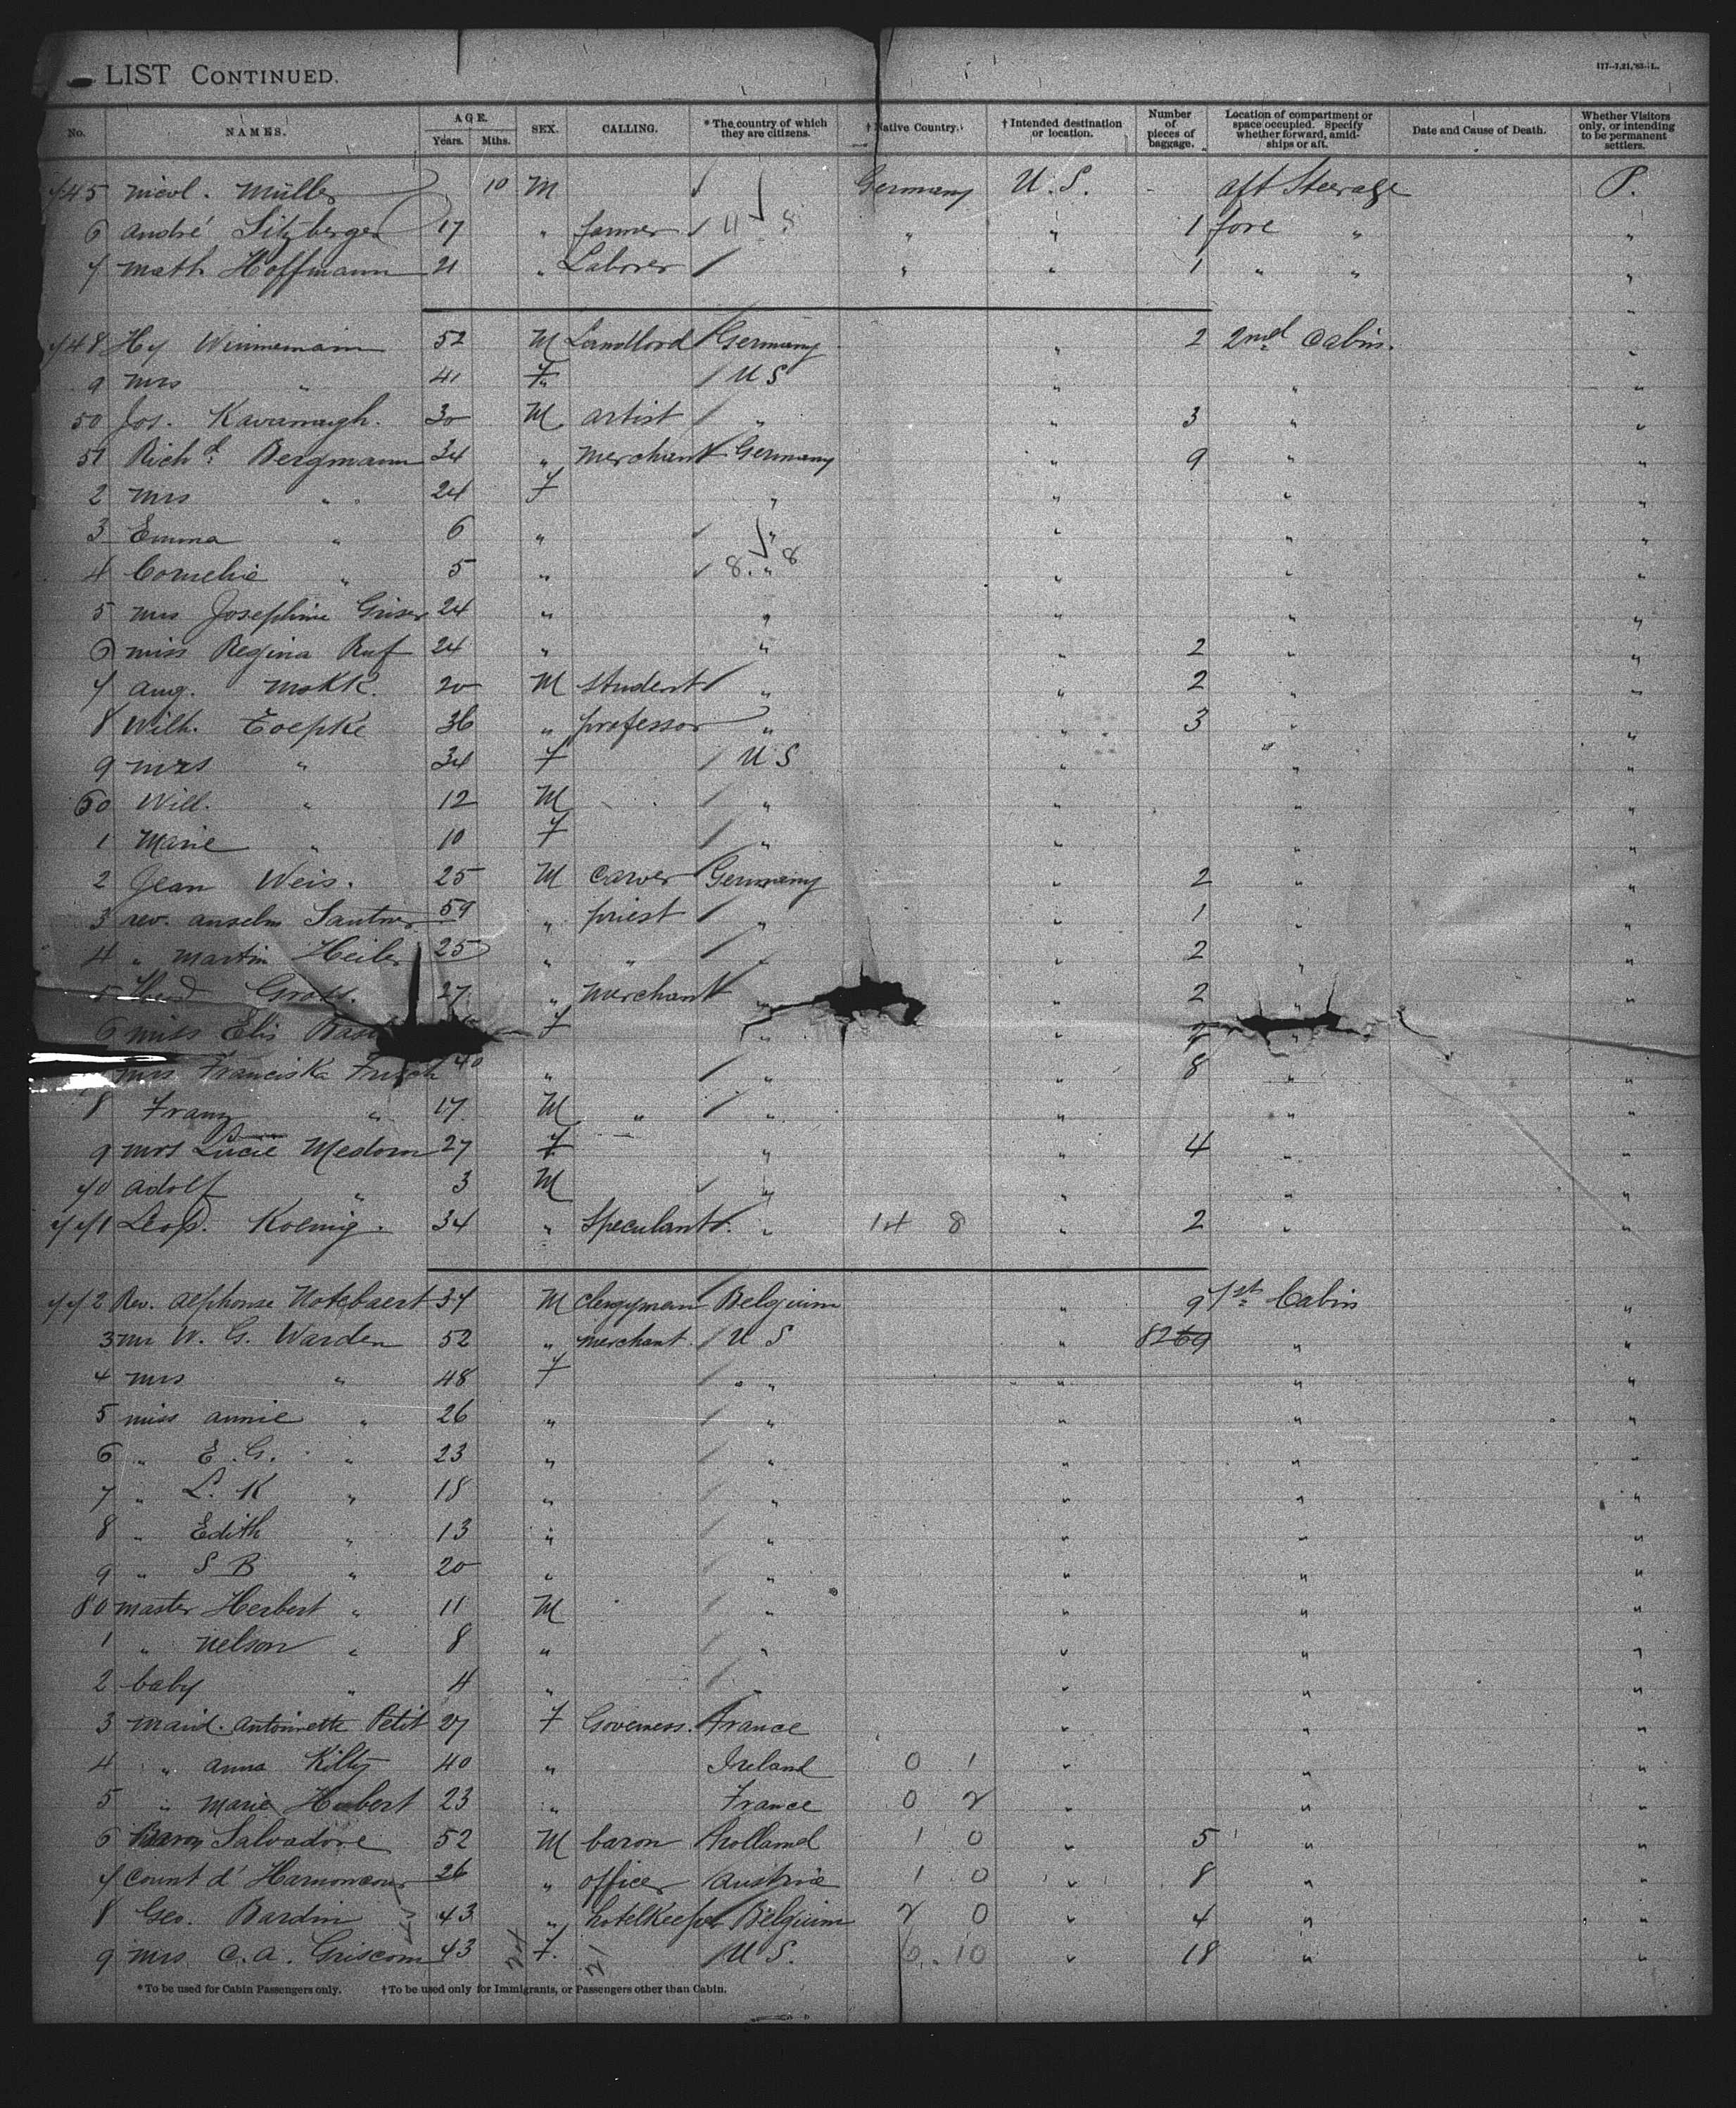 LIST CONTINUED.
117--7,21,'93--L.
No. NAMES. AGE. Years. Mths. SEX. CALLING. * The country of which they are citizens. † Native Country. † Intended destination or location. Number of pieces of baggage. Location of compartment or space occupied. Specify whether forward, amidships or aft. Date and Cause of Death. Whether Visitors only, or intending to be permanent settlers.
745 Nicol. Müller 10 M Germany U.S. - aft Steerage P.
6 André Sitzberger 17 " farmer 11 8 " " 1 fore " "
7 Math Hoffmann 21 " Laborer " " 1 " " "
748 Hy Winnemann 52 M Landlord Germany " 2 2nd Cabin. "
9 Mrs " 41 F " U S " " "
50 Jos. Kavanagh. 30 M artist " " 3 " "
51 Richd. Bergmann 34 " merchant Germany " 9 " "
2 Mrs " 24 F " " " "
3 Emma " 6 " " " " "
4 Cornelie " 5 " 8 " 8 " " "
5 Mrs Josephine Griser 24 " " " " "
6 Miss Regina Ruf 24 " " " 2 " "
7 Aug. Mokk. 20 M student " " 2 " "
8 Wilh. Toepke 36 " professor " " 3 " "
9 Mrs " 34 F U S " " "
60 Will. " 12 M " " " "
1 Marie " 10 F " " " "
2 Jean Weis. 25 M Carver Germany " 2 " "
3 Rev. Anselm Santner 59 " priest " " 1 " "
4 " Martin Heiler 25 " " " " 2 " "
5 Gross. 27 " merchant " " 2 " "
6 Miss Elis F " " " "
Mrs Franciska Frisch 40 " " " 8 " "
8 Franz " 17 M " " " " "
9 Mrs Lucie Medorn 27 F " 4 " "
70 Adolf " 3 M " " " "
771 Leop. Koenig. 34 " Speculant " 14 8 " 2 " "
772 Rev. Alphonse Notebaert 37 M Clergyman Belgium " 9 1st Cabin "
3 Mr W. G. Warden 52 " merchant. U S " 82 69 " "
4 Mrs " 48 F " " " "
5 Miss Annie " 26 " " " " "
6 " E. G. " 23 " " " " "
7 " L. K " 18 " " " " "
8 " Edith " 13 " " " " "
9 " S B " 20 " " " " "
80 Master Herbert " 11 M " " " "
1 " Nelson " 8 " " " " "
2 baby " 4 " " " " "
3 Maid. Antoinette Petit 27 F Governess. France " " "
4 " Anna Kilty 40 " Ireland 0 1 " " "
5 " Marie Hubert 23 " France 0 2 " " "
6 Baron Salvadore 52 M baron Holland 1 0 " 5 " "
7 Count d' Harnoncour 26 " officer Austria 1 0 " 8 " "
8 Geo. Bardin 43 " hotelkeeper Belgium 2 0 " 4 " "
9 Mrs. C. A. Griscom 43 F. U S. 0 10 " 18 " "
24 21
* To be used for Cabin Passengers only. † To be used only for Immigrants, or Passengers other than Cabin.